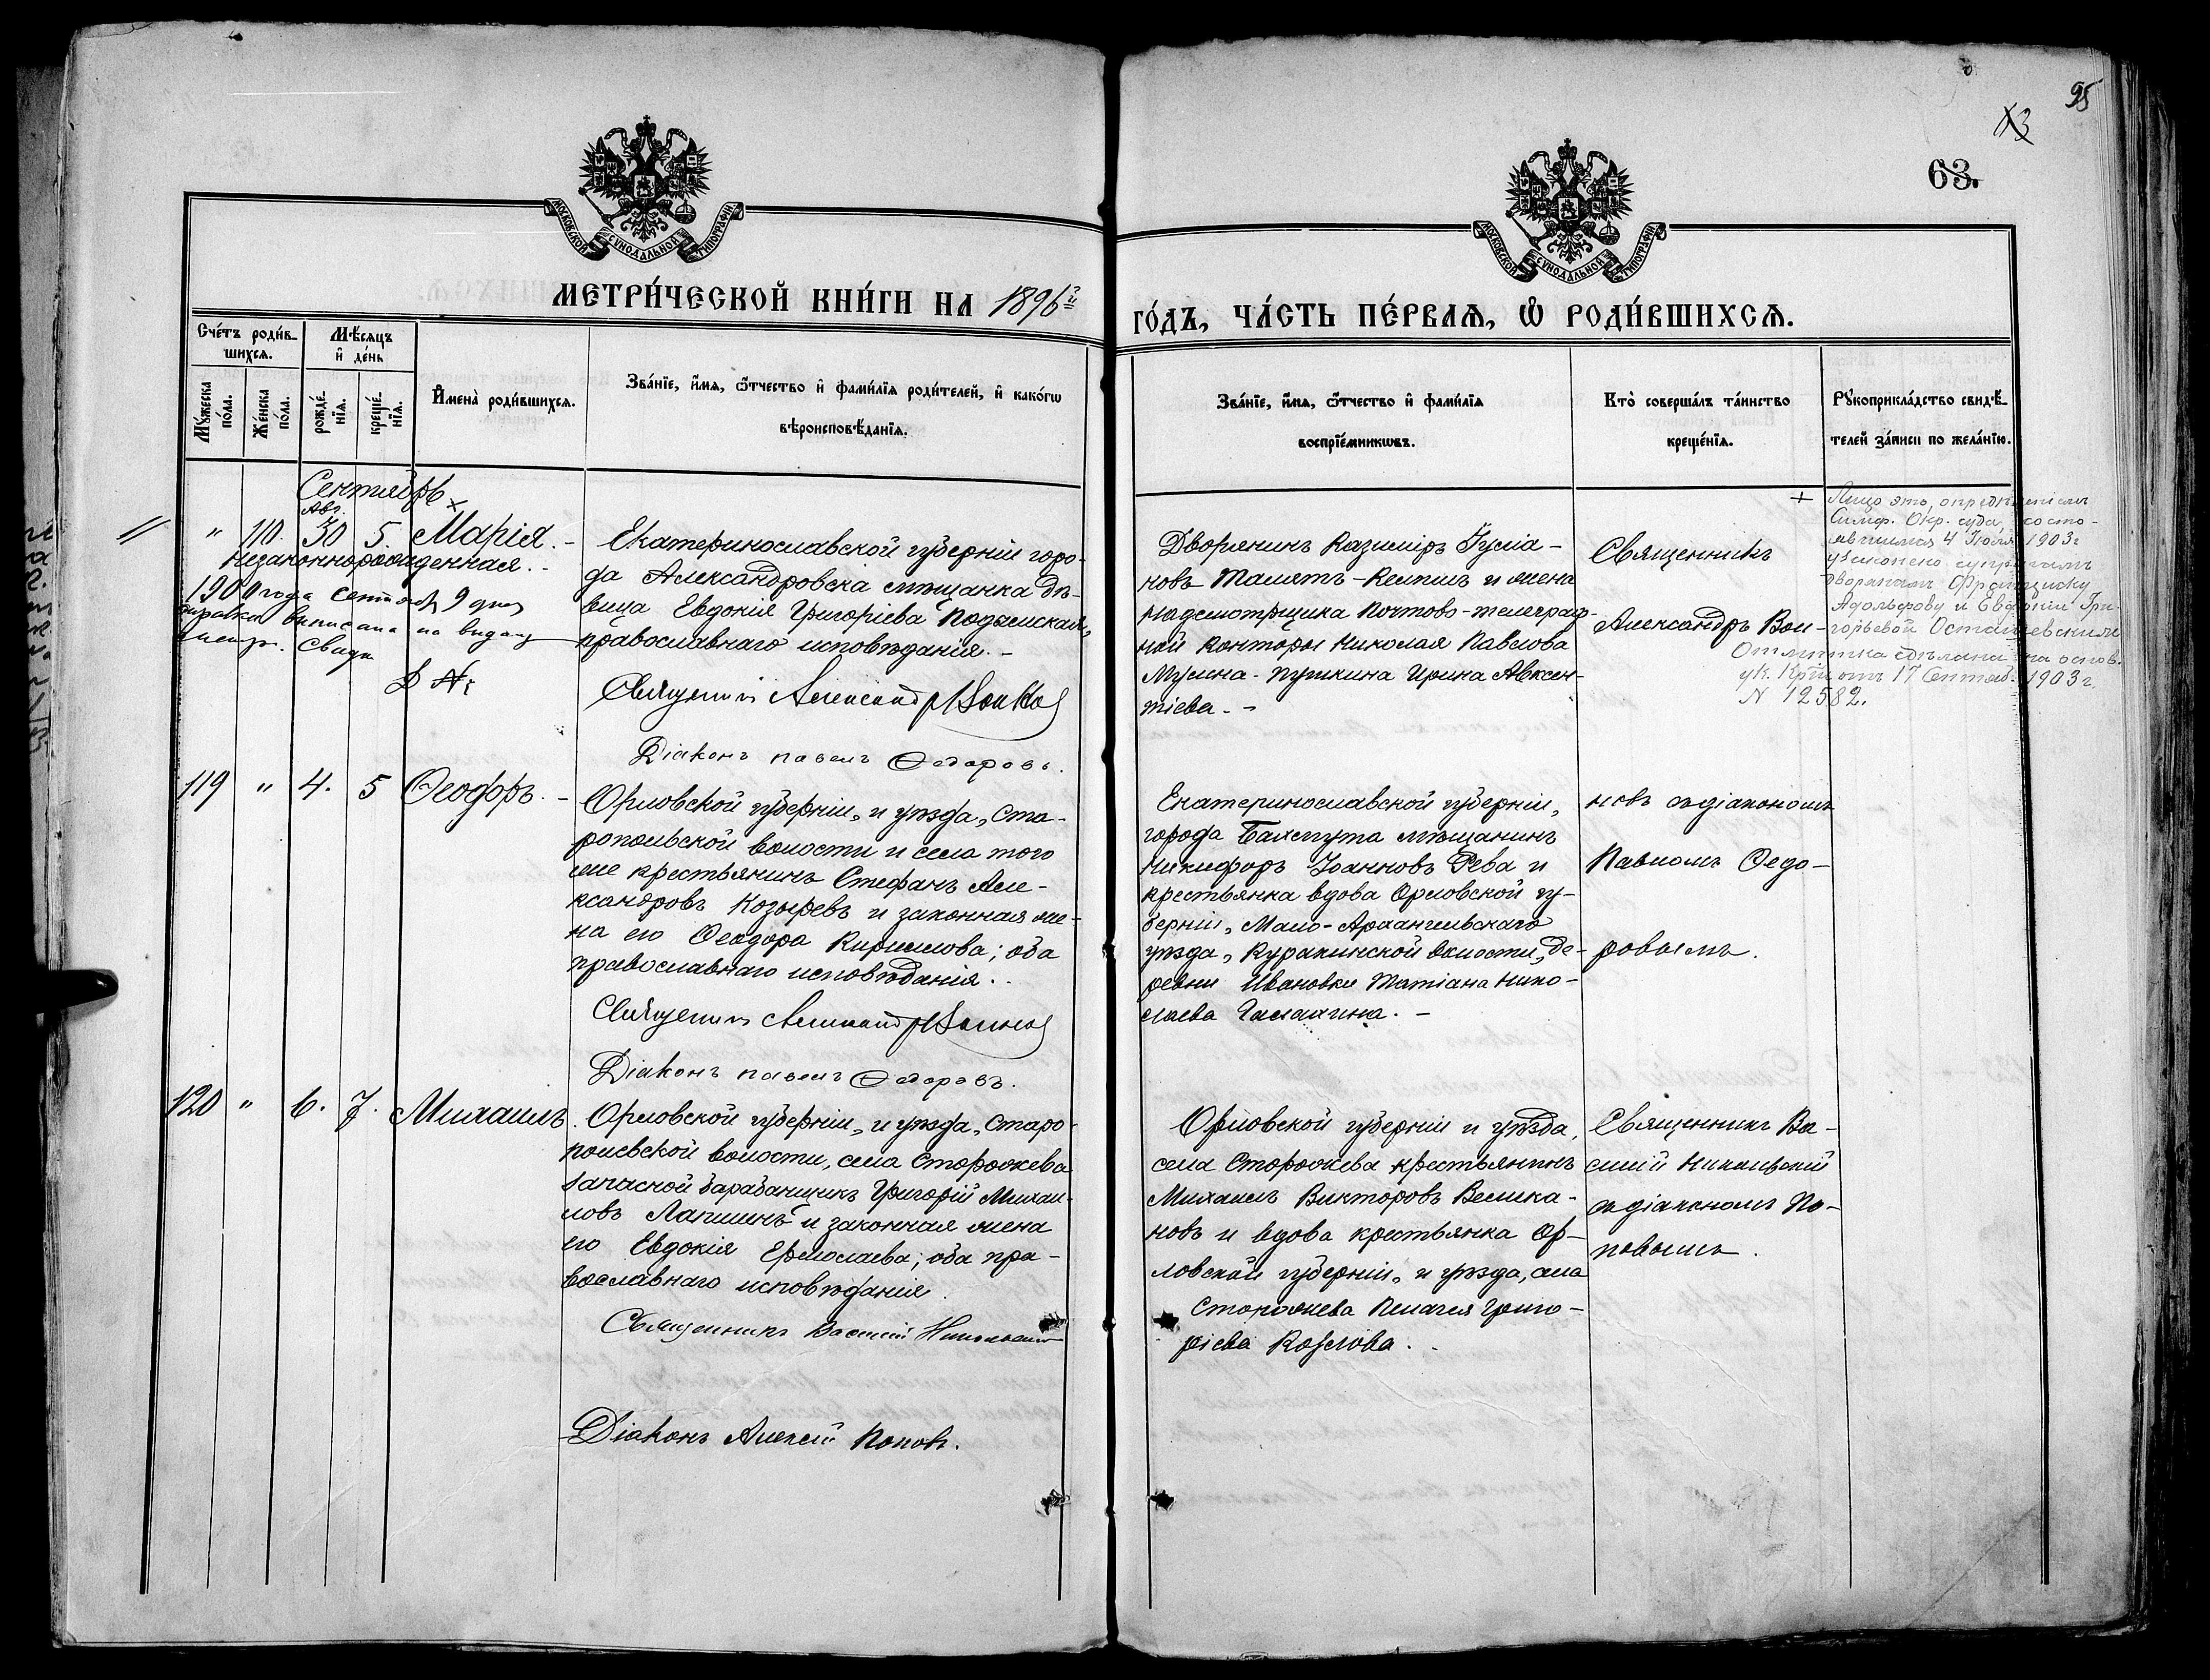 95
63.
МОСКОВСКОЙ СУНОДАЛЬНОЙ ТИПОГРАФІИ
МОСКОВСКОЙ СУНОДАЛЬНОЙ ТИПОГРАФІИ
МЕТРИ́ЧЕСКОЙ КНИ́ГИ НА 1896й
ГО́ДЪ, ЧА́СТЬ ПЕ́РВАЯ, Ѡ РОДИ́ВШИХСЯ.
Сче́тъ роди́в-
шихся.
Мѣ́сяцъ
и де́нь
Мꙋ́жеска
по́ла.
Же́нска
по́ла.
рожде́-
нїя.
креще́-
нїя.
Имена̀ роди́вшихся.
Зва́нїе, и́мя, ѻ́тчество и фами́лїя роди́телей, и како́гѡ
вѣроисповѣ́данїя.
Зва́нїе, и́мя, ѻ́тчество и фами́лїя
воспрїе́мникѡвъ.
Кто̀ соверша́лъ та́инство
креще́нїя.
Рꙋкоприкла́дство свидѣ́-
телей за́писи по жела́нїю.
Сентябрь
Авг.
" 110. 30 5. Марія. -
Незаконнорожденная. -
1900 года сентяб 9 дня
выписана на выдачу
метр. свид
Екатеринославской губерніи горо-
да Александровска мѣщанка дѣ-
вица Евдокія Григоріева
православнаго исповѣданія. -
Священникъ Александръ Воиновъ
Діаконъ Павелъ Ѳедоровъ.
Дворянинъ Казиміръ
новъ и жена
надсмотрщика Почтово-телеграф-
ной Конторы Николая Павлова
Мусина-Пушкина Ирина Авксен-
тіева. -
Священникъ
Александръ Вои-
+ Лицо это, опредѣленіемъ
Симф. Окр. суда, состо-
явшимся 4 Іюля 1903 г
узаконено супругамъ
дворянамъ Францишку
Адольфову и Евдокіи Гри-
горьевой Осташевскимъ
Отмѣтка сдѣлана на основ.
ук. отъ 17 Сентяб. 1903 г.
N 12582.
119 " 4. 5 Ѳеодоръ. -
Орловской губерніи, и уѣзда, Ста-
ропольской волости и села того
же крестьянинъ Стефанъ Але-
ксандровъ Козыревъ и законная же-
на его Ѳеодора Кириллова; оба
православнаго исповѣданія. .
Священникъ Александръ Воиновъ
Діаконъ Павелъ Ѳедоровъ.
Екатеринославской губерніи,
города Бахмута мѣщанинъ
Никифоръ Іоанновъ Рева и
крестьянка вдова Орловской гу-
берніи, Мало-Архангельскаго
уѣзда, Куракинской волости, де-
ревни Ивановки Татіана Нико-
лаева . -
новъ съ діакономъ
Павломъ Ѳедо-
ровымъ.
120 " 6. 7. Михаилъ.
Орловской губерніи, и уѣзда, Старо-
польской волости, села Сторожева
запасной барабанщикъ Григорій Михаи-
ловъ Лапшинъ и законная жена
его Евдокія Ермолаева; оба пра-
вославнаго исповѣданія.
Священникъ Василій Никольскій
Діаконъ Алексій Поповъ.
Орловской губерніи и уѣзда,
села Сторожева крестьянинъ
Михаилъ Викторовъ Велика-
новъ и вдова крестьянка Ор-
ловской губерніи, и уѣзда, села
Сторожева Пелагея Григо-
ріева Козлова.
Священникъ Ва-
силій Никольскій
съ діакономъ По-
повымъ.